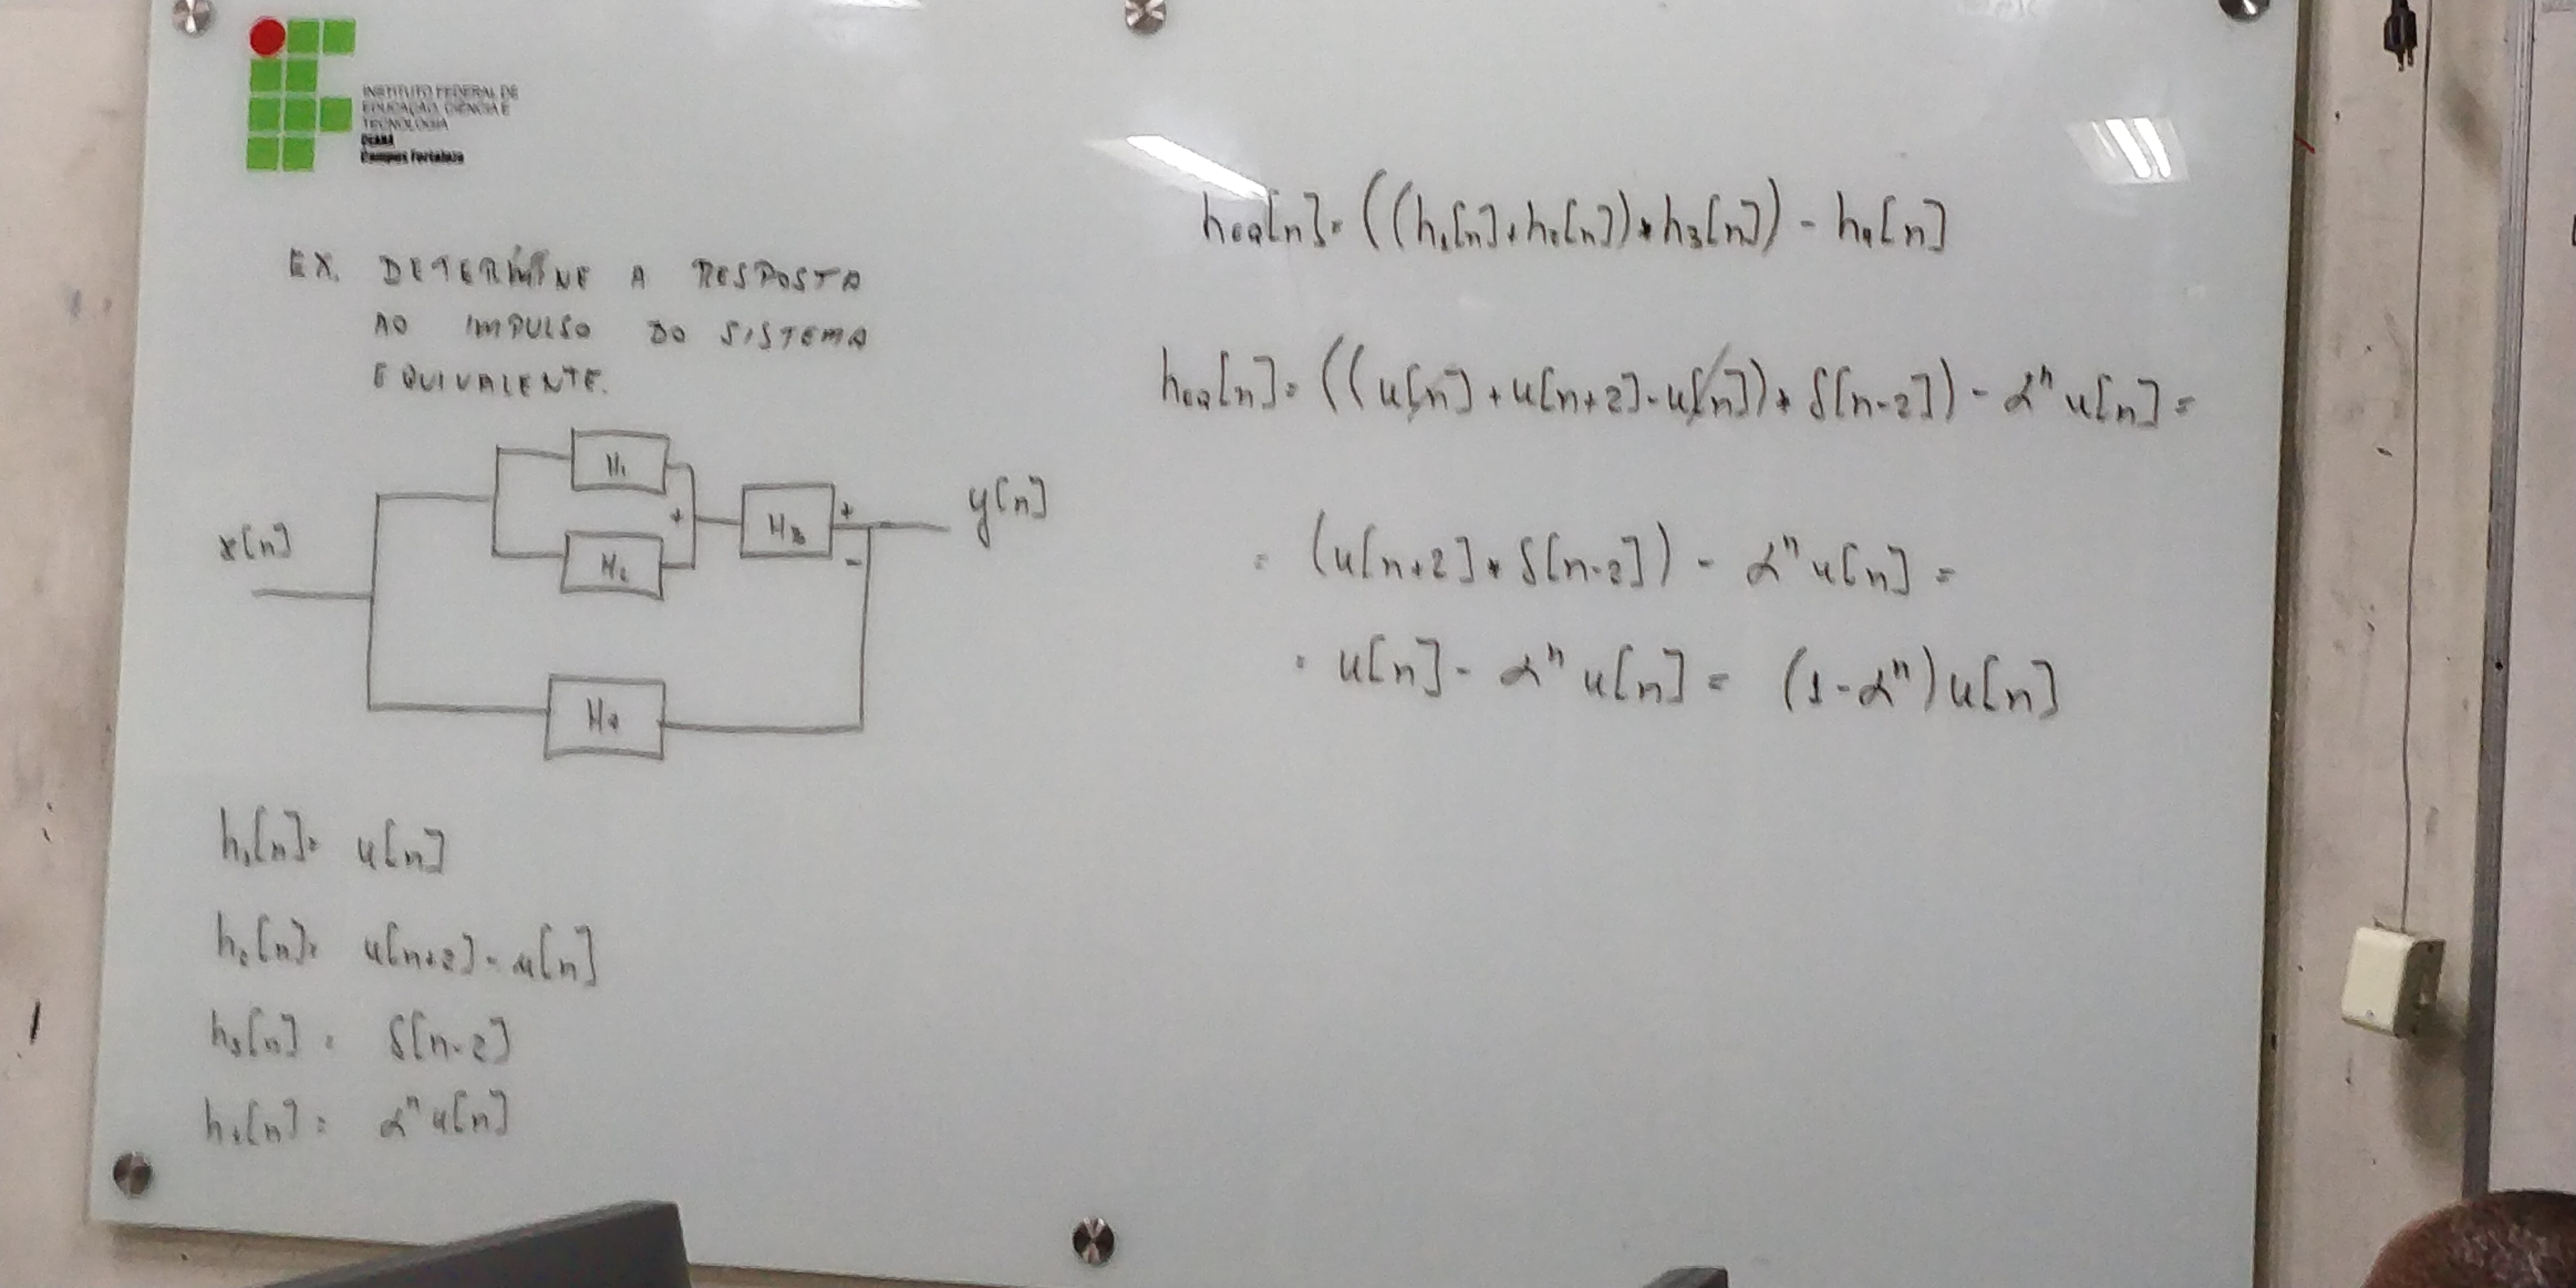 INSTITUTO FEDERAL DE
EDUCAÇÃO, CIÊNCIA E
TECNOLOGIA
CEARÁ
Campus Fortaleza
EX. DETERMINE A RESPOSTA
AO IMPULSO DO SISTEMA
EQUIVALENTE.
x[n]
H₁
H₂
+
H₃
+
-
y[n]
H₄
h₁[n]= u[n]
h₂[n]= u[n+2]-u[n]
h₃[n]= δ[n-2]
h₄[n]= αⁿu[n]
heq[n]=((h₁[n]+h₂[n])*h₃[n])-h₄[n]
heq[n]=((u[n]+u[n+2]-u[n])*δ[n-2])-αⁿu[n]=
=(u[n+2]*δ[n-2])-αⁿu[n]=
=u[n]-αⁿu[n]=(1-αⁿ)u[n]